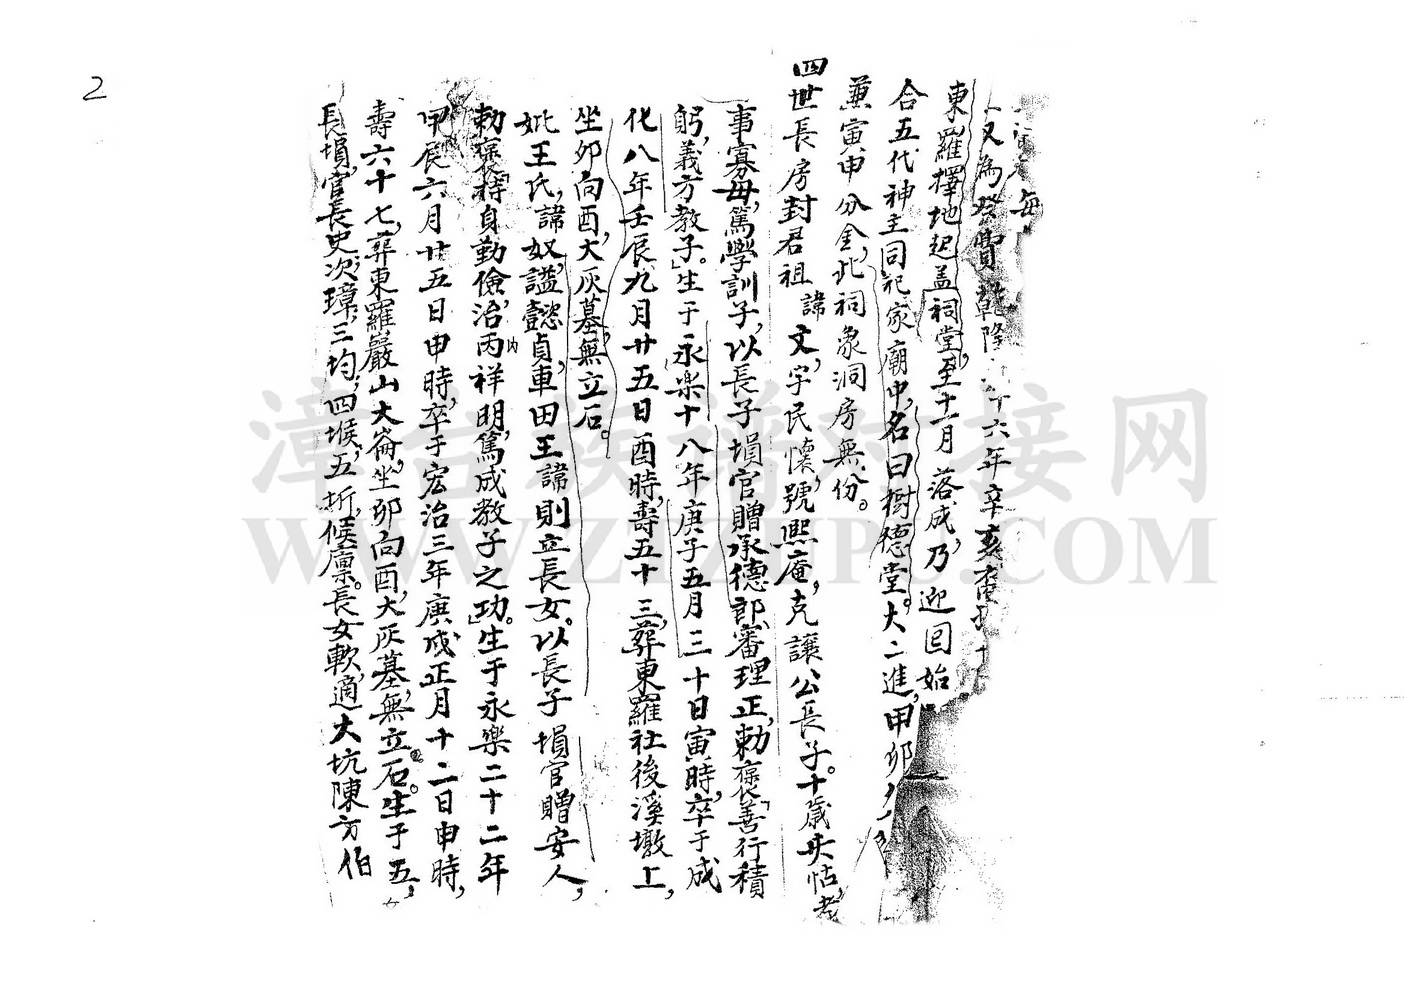 2
每
又為祭費乾隆 十六年辛亥
東羅擇地起盖祠堂,至十一月落成,乃迎回始
合五代神主同祀家廟中,名曰樹德堂。大二進,甲卯
兼寅申分金,此祠象洞房無份。
四世長房封君祖諱文,字民懷,號熙庵,克讓公長子。十歲失怙,孝
事寡母,篤學訓子,以長子塤官贈承德郎,審理正,勅褒「善行積
躬,義方教子」。生于永樂十八年庚子五月三十日寅時,卒于成
化八年壬辰九月廿五日酉時,壽五十三,葬東羅社後溪墩上,
坐卯向酉,大灰墓,無立石。
妣王氏,諱奴,謚懿貞,車田王諱則立長女。以長子塤官贈安人,
勅褒「持身勤儉,治內祥明,篤成教子之功」。生于永樂二十二年
甲辰六月廿五日申時,卒于宏治三年庚戌正月十二日申時,
壽六十七,葬東羅嚴山大崙,坐卯向酉,大灰墓,無立石。生于五,女
長塤,官長史,次璋,三均,四堠,五折,候廩。長女軟,適大坑陳方伯
漳台族谱对接网
WWW.ZTZUPU.COM